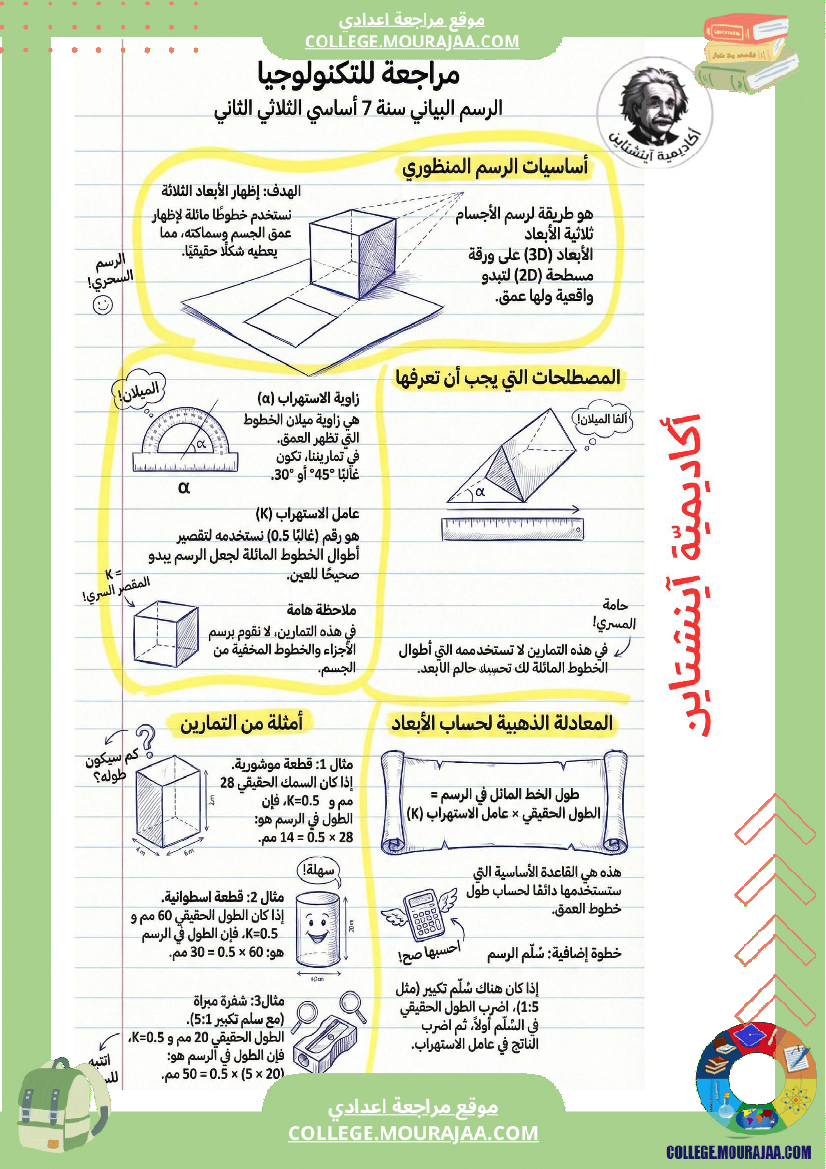 موقع مراجعة اعدادي
COLLEGE.MOURAJAA.COM
مراجعة للتكنولوجيا
الرسم البياني سنة 7 أساسي الثلاثي الثاني
أكاديمية آينشتاين
أساسيات الرسم المنظوري
هو طريقة لرسم الأجسام
ثلاثية الأبعاد
الأبعاد (3D) على ورقة
مسطحة (2D) لتبدو
واقعية ولها عمق.
الهدف: إظهار الأبعاد الثلاثة
نستخدم خطوطًا مائلة لإظهار
عمق الجسم وسماكته، مما
يعطيه شكلًا حقيقيًا.
الرسم
السحري!
المصطلحات التي يجب أن تعرفها
ألفا الميلان!
α
حامة
المسري!
في هذه التمارين لا تستخدممه التي أطوال
الخطوط المائلة لك تحسبك حالم الأبعد.
الميلان!
α
α
زاوية الاستهراب (α)
هي زاوية ميلان الخطوط
التي تظهر العمق.
في تماريننا، تكون
غالبًا °45 أو °30.
عامل الاستهراب (K)
هو رقم (غالبًا 0.5) نستخدمه لتقصير
أطوال الخطوط المائلة لجعل الرسم يبدو
صحيحًا للعين.
K =
المقصر السري!
ملاحظة هامة
في هذه التمارين، لا نقوم برسم
الأجزاء والخطوط المخفية من
الجسم.
المعادلة الذهبية لحساب الأبعاد
طول الخط المائل في الرسم =
الطول الحقيقي × عامل الاستهراب (K)
هذه هي القاعدة الأساسية التي
ستستخدمها دائمًا لحساب طول
خطوط العمق.
احسبها صح!
خطوة إضافية: سُلّم الرسم
إذا كان هناك سُلّم تكبير (مثل
1:5)، اضرب الطول الحقيقي
في السُلّم أولاً، ثم اضرب
الناتج في عامل الاستهراب.
أمثلة من التمارين
كم سيكون
طوله؟
مثال 1: قطعة موشورية.
إذا كان السمك الحقيقي 28
مم و K=0.5، فإن
الطول في الرسم هو:
28 × 0.5 = 14 مم.
سهلة!
مثال 2: قطعة اسطوانية.
إذا كان الطول الحقيقي 60 مم و
K=0.5، فإن الطول في الرسم
هو: 60 × 0.5 = 30 مم.
مثال3: شفرة مبراة
(مع سلم تكبير 5:1).
الطول الحقيقي 20 مم و K=0.5،
فإن الطول في الرسم هو:
(20 × 5) × 0.5 = 50 مم.
انتبه
أكاديميّة آينشتاين
موقع مراجعة اعدادي
COLLEGE.MOURAJAA.COM
COLLEGE.MOURAJAA.COM